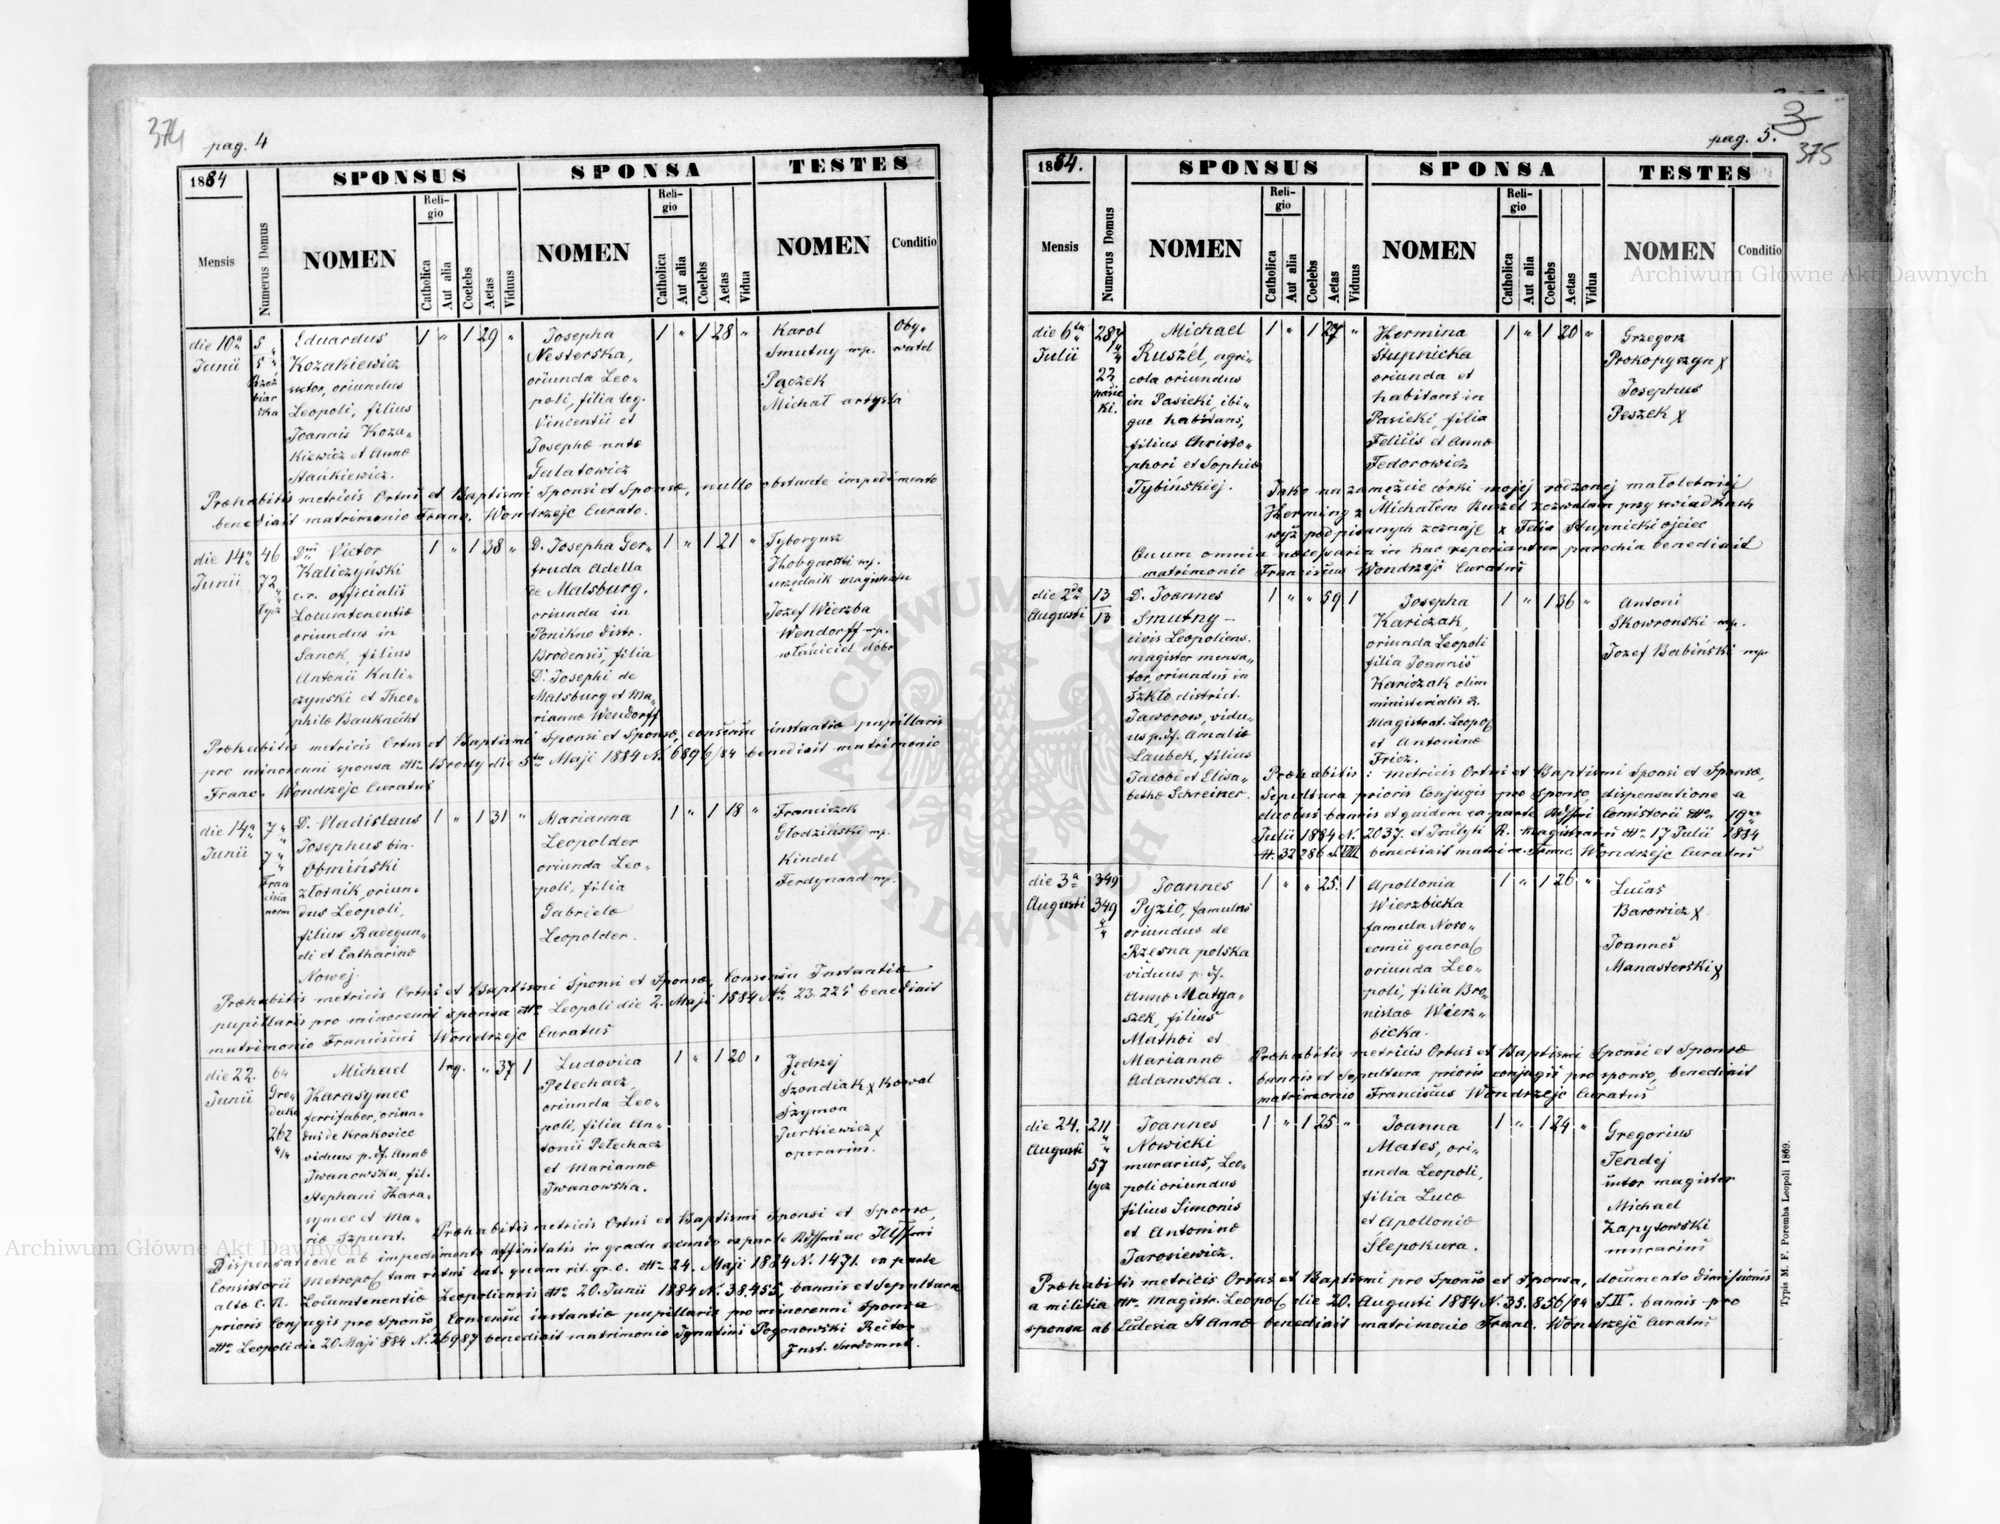 374
pag. 4
1884
SPONSUS
SPONSA
TESTES
Mensis
Numerus Domus
NOMEN
Religio
Catholica
Aut alia
Coelebs
Aetas
Viduus
NOMEN
Religio
Catholica
Aut alia
Coelebs
Aetas
Vidua
NOMEN
Conditio
die 10a
Junii
5
5
Eduardus
Kozakiewicz
sutor, oriundus
Leopoli, filius
Joannis Koza-
kiewicz et Annæ
Stańkiewicz.
1 " 1 29 "
Josepha
Nesterska,
oriunda Leo-
poli, filia leg.
Vincentii et
Josephæ natæ
Galatowicz
1 " 1 28 "
Karol
Smutny mp.
Pączek
Michał artysta
Oby-
watel
Præhabitis metricis Ortus et Baptismi Sponsi et Sponsæ, nullo obstante impedimento
benedixit matrimonio Franc. Wondrzejc Curatus.
die 14a
Junii
46
72
Lycz
Dnus Victor
Kaliczyński
c.r. officialis
Locumtenentiæ
oriundus in
Sanok, filius
Antonii Kali-
czynski et Theo-
philæ Bauknecht
1 " 1 38 "
D. Josepha Ger-
truda Adella
de Malsburg,
oriunda in
Ponikwa distr.
Brodensis, filia
D. Josephi de
Malsburg et Ma-
riannæ Wendorff
1 " 1 21 "
Tyborgusz
urzędnik magistratu
Jozef Wierzba
Wendorff mp.
właściciel dóbr
Præhabitis metricis Ortus et Baptismi Sponsi et Sponsæ, consensu instantiæ pupillaris
pro minorenni sponsa dto Brody die 5ta Maji 1884 N. 6896/84 benedixit matrimonio
Franc. Wondrzejc Curatus
die 14a
Junii
7
7
Fran
cisca
norm
D. Vladislaus
Josephus bin.
Obmiński
złotnik, oriun-
dus Leopoli,
filius Radegun-
di et Catharinæ
Nowej
1 " 1 31 "
Marianna
Leopolder
oriunda Leo-
poli, filia
Gabrielæ
Leopolder.
1 " 1 18 "
Franciszek
Głodziński mp.
Kindel
Ferdynand mp.
Præhabitis metricis Ortus et Baptismi Sponsi et Sponsæ, Consensu Instantiæ
pupillaris pro minorenni sponsa dto Leopoli die 2. Maji 1884 No. 23.225 benedixit
matrimonio Franciscus Wondrzejc Curatus
die 22.
Junii
64
262
Michael
Harasymec
ferrifaber, oriun-
dus de Krakowiec
viduus p. def. Annæ
Iwanowska, fil.
Stephani Hara-
symec et Ma-
riæ Szpunt.
1 rg. " 37 1
Ludovica
Pełechacz,
oriunda Leo-
poli, filia An-
tonii Pełechacz
et Mariannæ
Iwanowska.
1 " 1 20 "
Jędrzej
Szondiak x Kowal
Szymon
Jurkiewicz x
operarius.
Præhabitis metricis Ortus et Baptismi Sponsi et Sponsæ,
Dispensatione ab impedimento affinitatis in gradu secundo ex parte Rdssmi ac Illssmi
Consistorii Metropol. tam ritus lat. quam rit. gr. c. dto 24. Maji 1884 N. 1471. ex parte
alto C. R. Locumtenentiæ Leopoliensis dto 20. Junii 1884 N. 38.455, bannis et Sepultura
prioris Conjugis pro Sponso, Consensu instantiæ pupillaris pro minorenni Sponsa
dto Leopoli die 20 Maji 884 N. 26987 benedixit matrimonio Ignatius Pogonowski Rector
Inst. Surdomut.
3
pag. 5.
375
1884.
SPONSUS
SPONSA
TESTES
Mensis
Numerus Domus
NOMEN
Religio
Catholica
Aut alia
Coelebs
Aetas
Vidus
NOMEN
Religio
Catholica
Aut alia
Coelebs
Aetas
Vidua
NOMEN
Conditio
die 6ta
Julii
287
22
Pasie
ki.
Michael
Ruszel, agri-
cola oriundus
in Pasieki ibi-
que habitans,
filius Christo-
phori et Sophiæ
Tybińskiej.
1 " 1 27 "
Hermina
Stupnicka
oriunda et
habitans in
Pasieki, filia
Felicis et Annæ
Fedorowicz
1 " 1 20 "
Grzegorz
Prokopyszyn x
Josephus
Peszek x
Jako na zamęźcie córki mojej rodzonej małoletniej
Herminy z Michałem Ruszel zezwalam przy świadkach
wyż podpisanych zeznaję x Felix Stupnicki ojciec
Quum omnia necessaria in hac reperiantur parochia benedixit
matrimonio Franciscus Wondrzejc Curatus
die 2da
Augusti
13
13
D. Joannes
Smutny –
civis Leopoliens.
magister mensa-
tor, oriundus in
Szkło district.
Jaworow, vidu-
us p. def. Amaliæ
Laubek, filius
Jacobi et Elisa-
bethæ Schreiner.
1 " " 59 1
Josepha
Kariczak,
oriunda Leopoli
filia Joannis
Kariczak olim
ministerialis R.
Magistrat. Leopol
et Antoninæ
Fricz.
1 " 1 36 "
Antoni
Skowronski mp.
Jozef Babiński mp
Præhabitis: metricis Ortus et Baptismi Sponsi et Sponsæ,
Sepultura prioris Conjugis pro Sponso, dispensatione a
duobus bannis et quidem ex parte Rdssmi Consistorii dto 19na
Julii 1884 N. 2037. et Inclyti R. Magistratus dto 17 Julii 1884
N. 32286 LVIII benedixit matrim. Franc. Wondrzejc Curatus
die 3a
Augusti
349
349
Joannes
Pyzio, famulus
oriundus de
Rzesna polska
viduus p. def.
Annæ Małga-
szek, filius
Mathæi et
Mariannæ
Adamska.
1 " " 25. 1
Apollonia
Wierzbicka
famula Noso-
comii general
oriunda Leo-
poli, filia Bro-
nislaæ Wierz-
bicka.
1 " 1 26 "
Lucas
Barowicz x
Joannes
Manasterski x
Præhabitis metricis Ortus et Baptismi Sponsi et Sponsæ
bannis et Sepultura prioris conjugis pro sponso, benedixit
matrimonio Franciscus Wondrzejc Curatus
die 24.
Augusti
211
57
Lycz
Joannes
Nowicki
murarius, Leo-
poli oriundus
filius Simonis
et Antoninæ
Jarosiewicz.
1 " 1 25 "
Joanna
Mates, ori-
unda Leopoli,
filia Lucæ
et Apolloniæ
Ślepokura.
1 " 1 24 "
Gregorius
Tendej
sutor magister
Michael
Zapysowski
murarius
Præhabitis metricis Ortus et Baptismi pro Sponso et Sponsa, documento dimissionis
a militia dto Magistr. Leopol die 20. Augusti 1884 N. 35.836/84 SIV. bannis pro
sponsa ab Ecclesia St Annæ benedixit matrimonio Franc. Wondrzejc Curatus
Typis M. F. Poremba Leopoli 1869.
Archiwum Główne Akt Dawnych
Archiwum Główne Akt Dawnych
ARCHIWUM GŁÓWNE AKT DAWNYCH